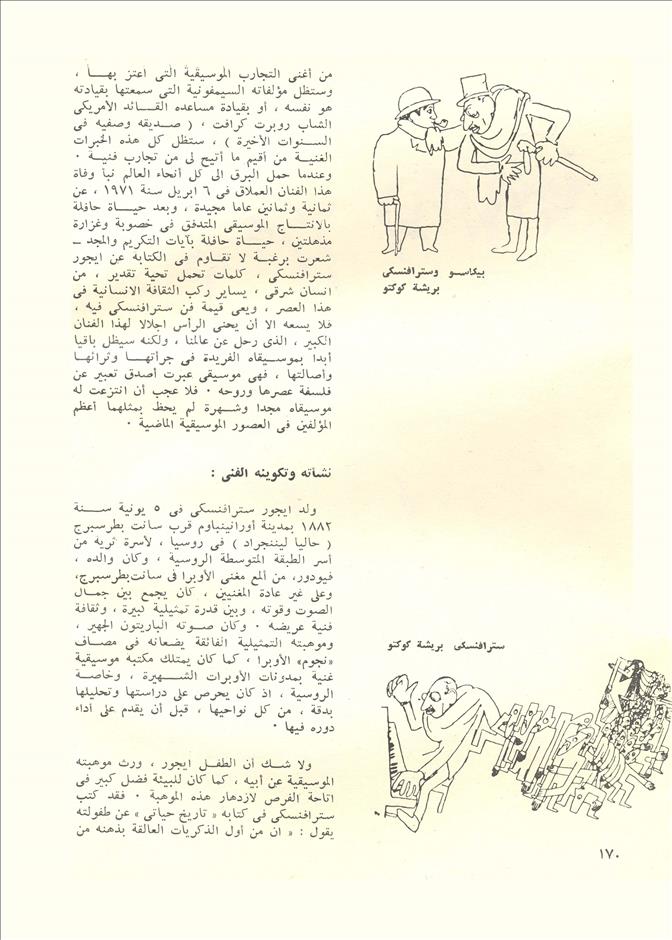 من أغنى التجارب الموسيقية التى اعتز بهــا ،
وستظل مؤلفاته السيمفونية التى سمعتها بقيادته
هو نفسه ، أو بقيادة مساعده القــائد الأمريكى
الشاب روبرت كرافت ، ( صــديقه وصفيه فى
الســنوات الأخيرة ) ، ستظل كل هذه الخبرات
الغنيــة من أقيم ما أتيح لى من تجارب فنيــة ٠
وعندما حمل البرق الى كل أنحاء العالم نبأ وفاة
هذا الفنان العملاق فى ٦ ابريل سنة ١٩٧١ ، عن
ثمانية وثمانين عاما مجيدة ، وبعد حيــاة حافلة
بالانتــاج الموسيقى المتدفق فى خصوبة وغزارة
مذهلتين ، حيــاة حافلة بآيات التكريم والمجد ــ
شعرت برغبــة لا تقــاوم فى الكتابه عن ايجور
سترافنسكى ، كلمات تحمل تحية تقدير ، من
انسان شرقى ، يساير ركب الثقافة الانسانية فى
هذا العصر ، ويعى قيمة فن سترافنسكى فيه ،
فلا يسعه الا أن يحنى الرأس اجلالا لهذا الفنان
الكبير ، الذى رحل عن عالمنا ، ولكنه سيظل باقيا
أبدا بموســيقاه الفريدة فى جرأتهــا وثرائها
وأصالتها ، فهى موسيقى عبرت أصدق تعبير عن
فلسفة عصرها وروحه ٠ فلا عجب أن انتزعت له
موسيقاه مجدا وشهــرة لم يحظ بمثلهما أعظم
المؤلفين فى العصور الموسيقية الماضية ٠
نشأته وتكوينه الفنى :
ولد ايجور سترافنسكى فى ٥ يونية ســنة
١٨٨٢ بمدينة أورانينباوم قرب سانت بطرسبرج
( حاليا ليننجراد ) فى روسيا ، لأسرة ثريه من
أسر الطبقة المتوسطة الروسية ، وكان والده ،
فيودور، من ألمع مغنى الأوبرا فى سانت‌بطرسبرج،
وعلى غير عادة المغنيين ، كان يجمع بين جمــال
الصوت وقوته ، وبين قدرة تمثيلية كبيرة ، وثقافة
فنية عريضه ٠ وكان صــوته الباريتون الجهير ،
وموهبته التمثيلية الفائقة يضعانه فى مصــاف
«نجوم» الأوبرا ، كما كان يمتلك مكتبه موسيقية
غنية بمدونات الأوبرات الشــهيرة ، وخاصــة
الروسية ، اذ كان يحرص على دراستها وتحليلها
بدقة ، من كل نواحيها ، قبل أن يقدم على أداء
دوره فيها ٠
ولا شــك أن الطفــل ايجور ، ورث موهبته
الموسيقية عن أبيه ، كما كان للبيئة فضل كبير فى
اتاحة الفرص لازدهار هذه الموهبة ٠ فقد كتب
سترافنسكى فى كتابه « تاريخ حياتى » عن طفولته
يقول : « ان من أول الذكريات العالقة بذهنه من
بيكاســو وسترافنسكى
بريشة كوكتو
سترافنسكى بريشة كوكتو
١٧٠